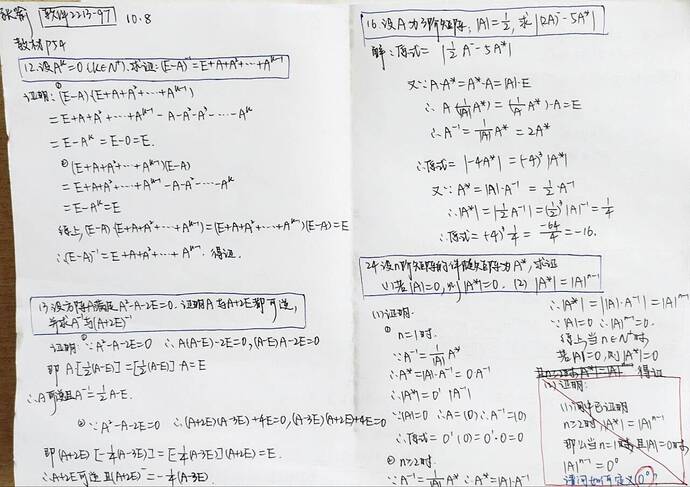 张翕 软件2213-97 10.8
教材P54
12.设Aᴷ=0 (K∈N⁺).求证:(E-A)⁻¹=E+A+A²+…+Aᴷ⁻¹
证明:①(E-A)(E+A+A²+…+Aᴷ⁻¹)
=E+A+A²+…+Aᴷ⁻¹-A-A²-A³-…-Aᴷ
=E-Aᴷ=E-0=E.
②(E+A+A²+…+Aᴷ⁻¹)(E-A)
=E+A+A²+…+Aᴷ⁻¹-A-A²-…-Aᴷ
=E-Aᴷ=E
综上,(E-A)(E+A+A²+…+Aᴷ⁻¹)=(E+A+A²+…+Aᴷ⁻¹)(E-A)=E
∴(E-A)⁻¹=E+A+A²+…+Aᴷ⁻¹.得证.
13.设方阵A满足A²-A-2E=0.证明A与A+2E都可逆,
并求A⁻¹与(A+2E)⁻¹
证明:①∵A²-A-2E=0 ∴A(A-E)-2E=0,(A-E)A-2E=0
即A[½(A-E)]=[½(A-E)]·A=E
∴A可逆且A⁻¹=½A-E.
②∵A²-A-2E=0 ∴(A+2E)(A-3E)+4E=0,(A-3E)(A+2E)+4E=0
即(A+2E)[-¼(A-3E)]=[-¼(A-3E)](A+2E)=E.
∴A+2E可逆且(A+2E)⁻¹=-¼(A-3E)
16.设A为3阶矩阵,|A|=½,求|(2A)⁻¹-5A*|
解:原式=|½A⁻¹-5A*|
又∵A·A*=A*·A=|A|·E
∴A(1/|A| A*)=(1/|A| A*)·A=E
∴A⁻¹=1/|A| A*=2A*
∴原式=|-4A*|=(-4)³|A*|
又∵A*=|A|·A⁻¹=½A⁻¹
∴|A*|=|½A⁻¹|=(½)³|A|⁻¹=¼
∴原式=(-4)³¼=-64/4=-16.
24.设n阶矩阵A的伴随矩阵为A*,求证
(1)若|A|=0,则|A*|=0. (2)|A*|=|A|ⁿ⁻¹
(1)证明:
①n=1时.
∵A⁻¹=1/|A| A*
∴A*=|A|·A⁻¹=0·A⁻¹
∴|A*|=0¹|A⁻¹|
∵|A|=0 ∴A=(0)∴A⁻¹=(0)
∴原式=0¹|0|=0¹·0=0
②n≥2时.
∵A⁻¹=1/|A| A* ∴A*=|A|·A⁻¹
∴|A*|=||A|·A⁻¹|=|A|ⁿ⁻¹
∵|A|=0 ∴|A|ⁿ⁻¹=0.
综上,当n∈N⁺时
若|A|=0,则|A*|=0
得证
(2)证明:
(1)问中已证明
n≥2时,|A*|=|A|ⁿ⁻¹
那么当n=1时且|A|=0时
|A|ⁿ⁻¹=0⁰
请问如何定义(0⁰)